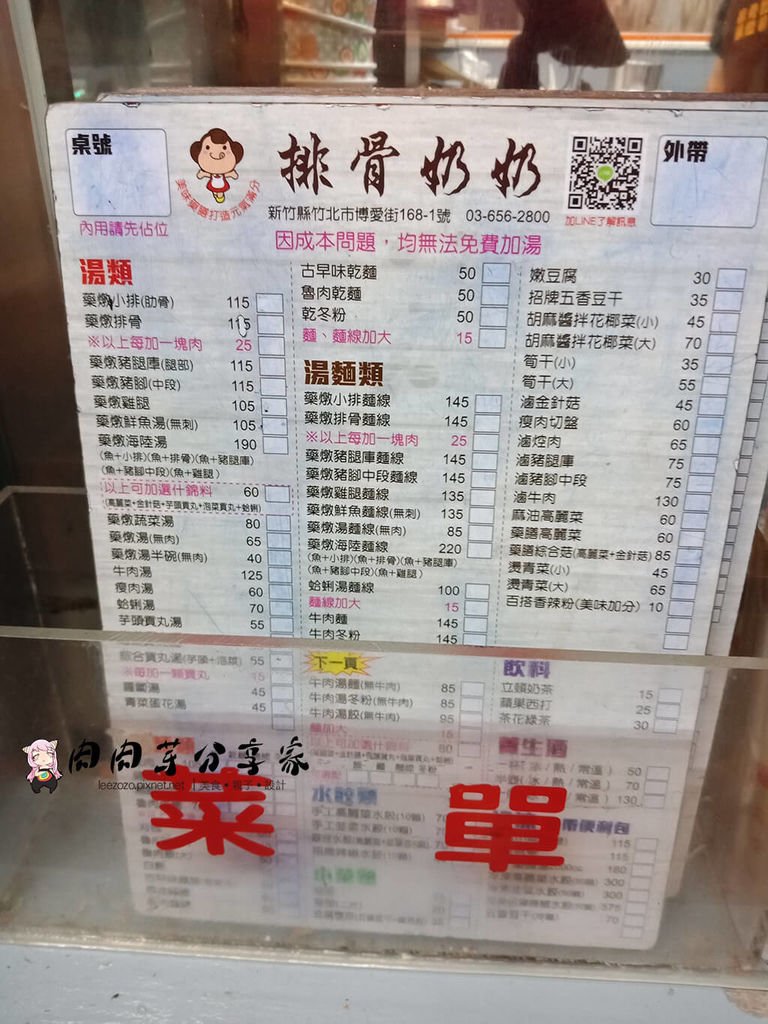 桌號
美味藥膳打造元氣滿分
排骨奶奶
外帶
新竹縣竹北市博愛街168-1號 03-656-2800
加LINE了解訊息
內用請先佔位
因成本問題，均無法免費加湯
湯類
藥燉小排(肋骨) 115
藥燉排骨 115
※以上每加一塊肉 25
藥燉豬腿庫(腿部) 115
藥燉豬腳(中段) 115
藥燉雞腿 105
藥燉鮮魚湯(無刺) 105
藥燉海陸湯 190
(魚+小排)(魚+排骨)(魚+豬腿庫)
(魚+豬腳中段)(魚+雞腿)
以上可加選什錦料 60
(高麗菜+金針菇+芋頭貢丸+泡菜貢丸+蛤蜊)
藥燉蔬菜湯 80
藥燉湯(無肉) 65
藥燉湯半碗(無肉) 40
牛肉湯 125
瘦肉湯 60
蛤蜊湯 70
芋頭貢丸湯 55
綜合貢丸湯(芋頭+泡菜) 55
※每加一顆貢丸 15
45
青菜蛋花湯 45
古早味乾麵 50
魯肉乾麵 50
乾冬粉 50
麵、麵線加大 15
湯麵類
藥燉小排麵線 145
藥燉排骨麵線 145
※以上每加一塊肉 25
藥燉豬腿庫麵線 145
藥燉豬腳中段麵線 145
藥燉雞腿麵線 135
藥燉鮮魚麵線(無刺) 135
藥燉湯麵線(無肉) 85
藥燉海陸麵線 220
(魚+小排)(魚+排骨)(魚+豬腿庫)
(魚+豬腳中段)(魚+雞腿)
蛤蜊湯麵線 100
麵線加大 15
牛肉麵 145
牛肉冬粉 145
下一頁
牛肉湯麵(無牛肉) 85
牛肉湯冬粉(無牛肉) 85
牛肉湯餃(無牛肉) 95
麵加大 15
以上可加選什錦料 60
水餃類
手工高麗菜水餃(10顆) 70
手工韭菜水餃(10顆)
嫩豆腐 30
招牌五香豆干 35
胡麻醬拌花椰菜(小) 45
胡麻醬拌花椰菜(大) 70
筍干(小) 35
筍干(大) 55
滷金針菇 45
瘦肉切盤 60
滷焢肉 65
滷豬腿庫 75
滷豬腳中段 75
滷牛肉 130
麻油高麗菜 60
藥膳高麗菜 60
藥膳綜合菇(高麗菜+金針菇) 85
燙青菜(小) 45
燙青菜(大) 65
百搭香辣粉(美味加分) 10
飲料
立頓奶茶 15
蘋果西打 25
茶花綠茶 30
養生酒
一杯(冰/熱/常溫) 50
半壺(冰/熱/常溫) 70
130
115
115
180
300
300
375
70
肉肉芽分享家
leezozo.pixnet.net | 美食•親子•設計
菜單